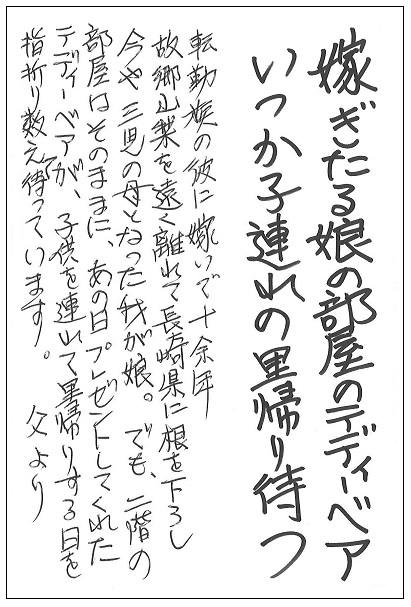 嫁ぎたる娘の部屋のテディーベア
いつか子連れの里帰り待つ
転勤族の彼に嫁いで十余年
故郷山梨を遠く離れて長崎県に根を下ろし
今や三児の母となった我が娘。でも、二階の
部屋はそのままに、あの日プレゼントしてくれた
テディーベアが、子供を連れて里帰りする日を
指折り数えて待っています。 父より